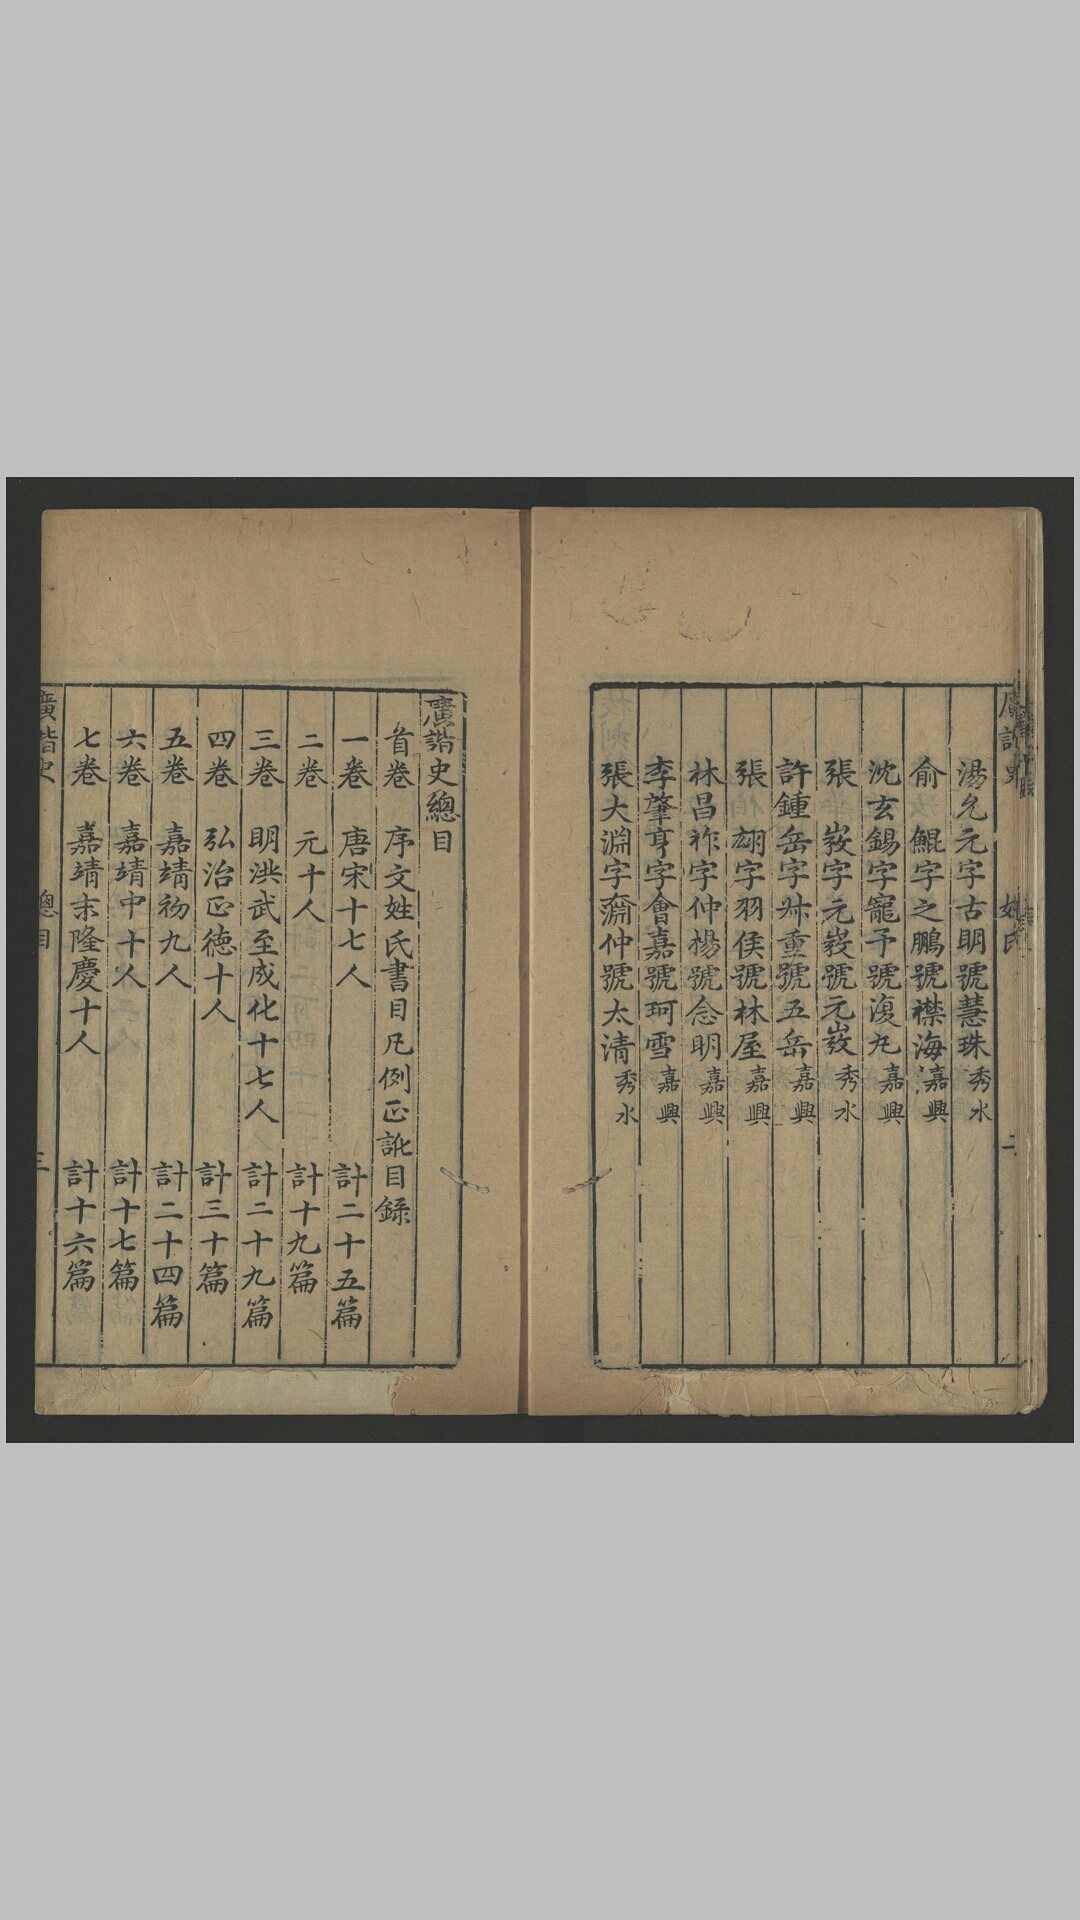 湯允元字古明號慧珠秀水
俞鯤字之鵬號襟海嘉興
沈玄錫字寵予號復九嘉興
張字元號元秀水
許鍾岳字重號五岳嘉興
張翃字羽侯號林屋嘉興
林昌祚字仲楊號念明嘉興
李肇亨字會嘉號珂雪嘉興
張大淵字仲號太清秀水
姓氏
二
廣諧史總目
首卷 序文姓氏書目凡例正訛目錄
一卷 唐宋十七人 計二十五篇
二卷 元十人 計十九篇
三卷 明洪武至成化十七人 計二十九篇
四卷 弘治正德十人 計三十篇
五卷 嘉靖初九人 計二十四篇
六卷 嘉靖中十人 計十七篇
七卷 嘉靖末隆慶十人 計十六篇
廣諧史 總目 三